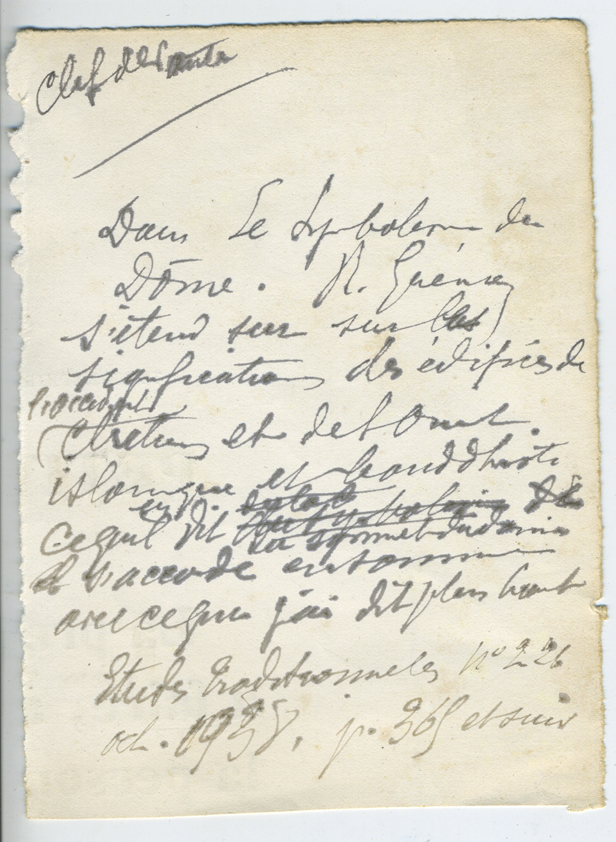 Clef de Vanta
Dans Le Symbolisme du
Dôme. R. Guénon
s'étend sur sur les
significations des édifices de
l'occident
chrétiens et de l'Orient.
islamique et bouddhiste
ce qu'il en dit
du sommet du dôme
s'accorde en somme
avec ce que j'ai dit plus haut
Etudes traditionnelles n° 226
oct. 1938, p. 365 et suiv